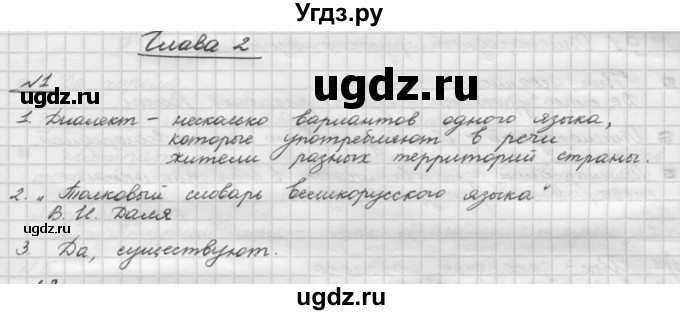 Угдз.ру
Глава 2
ugdz.ru
№1
ugdz.ru
1. Диалект - несколько вариантов одного языка,
которые употребляют в речи
жители разных территорий страны.
2. „Толковый словарь великорусского языка"
В. И. Даля
ugdz.ru
3. Да, существуют.
ugdz.ru
ugdz.ru